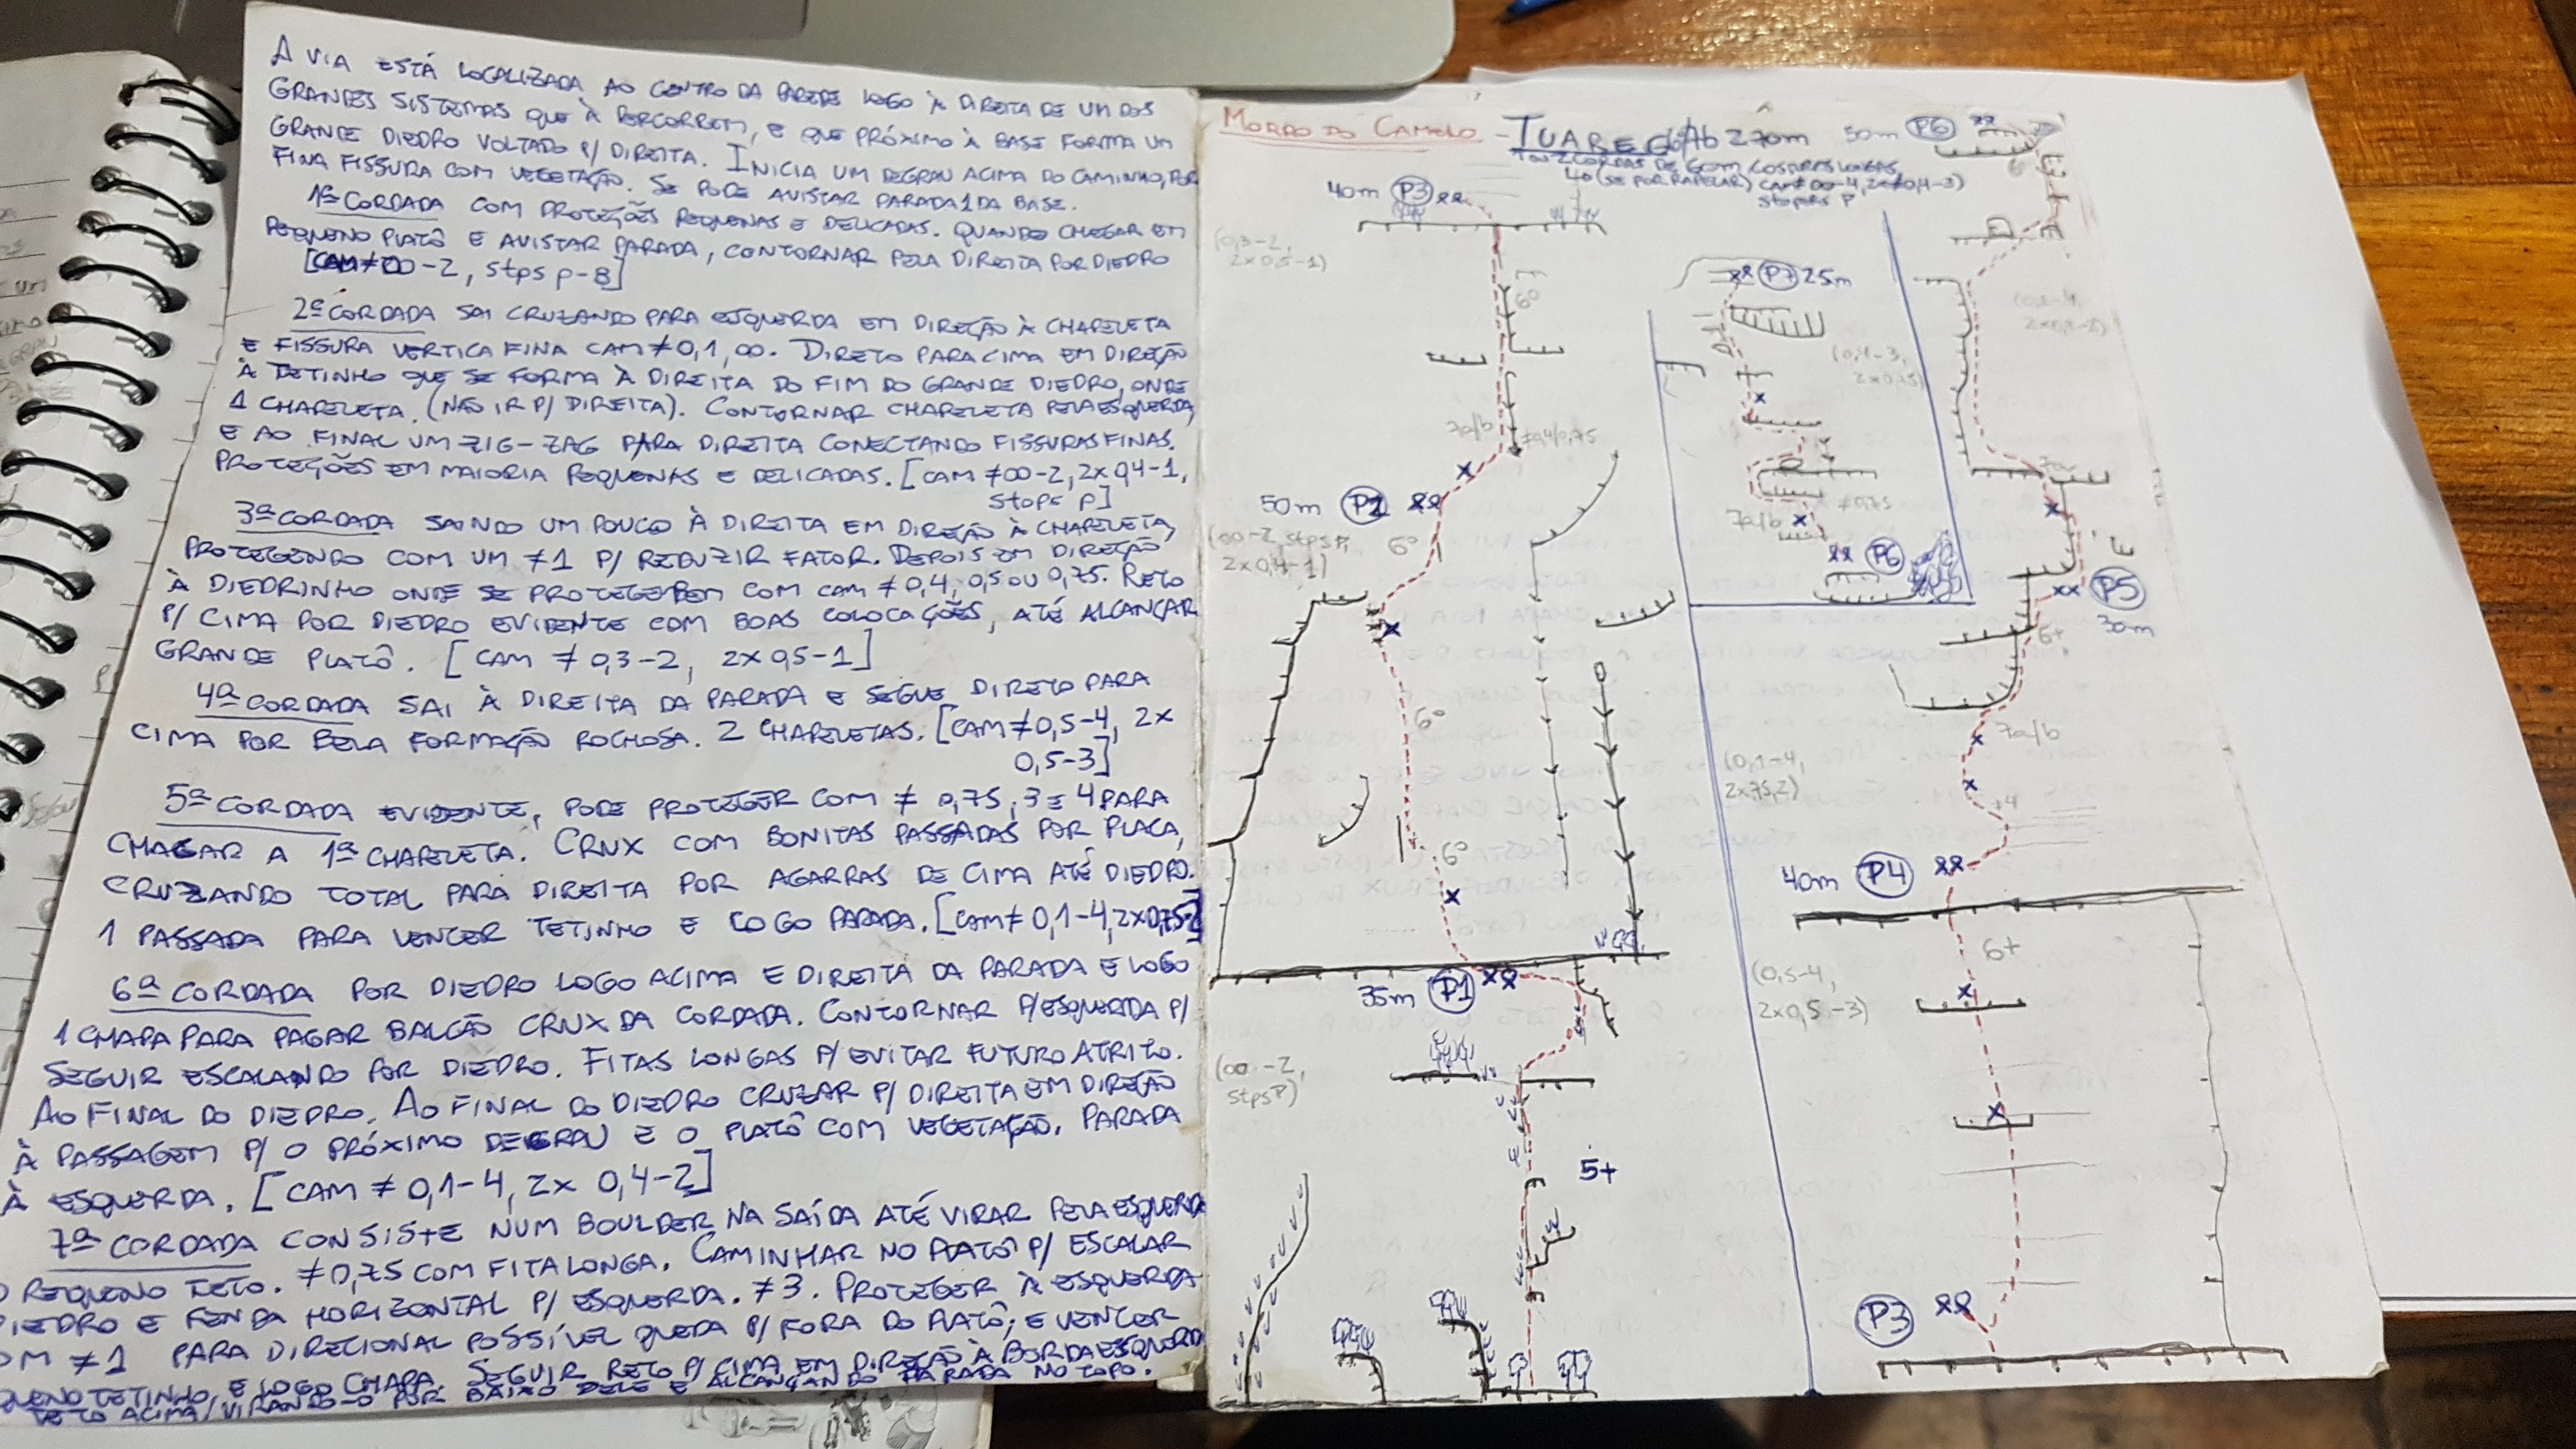 A VIA ESTÁ LOCALIZADA AO CENTRO DA PAREDE LOGO À DIREITA DE UM DOS
GRANDES SISTEMAS QUE À PERCORREM, E QUE PRÓXIMO À BASE FORMA UM
GRANDE DIEDRO VOLTADO P/ DIREITA. INICIA UM DEGRAU ACIMA DO CAMINHO, POR
FINA FISSURA COM VEGETAÇÃO. SE PODE AVISTAR PARADA 1 DA BASE.
1ª CORDADA COM PROTEÇÕES PEQUENAS E DELICADAS. QUANDO CHEGAR EM
PEQUENO PLATÔ E AVISTAR PARADA, CONTORNAR PELA DIREITA POR DIEDRO
[CAM ≠ 00-2, stps p-8]
2ª CORDADA SAI CRUZANDO PARA ESQUERDA EM DIREÇÃO À CHAPELETA
E FISSURA VERTICA FINA CAM ≠ 0,1, 00. DIRETO PARA CIMA EM DIREÇÃO
À TETINHO QUE SE FORMA À DIREITA DO FIM DO GRANDE DIEDRO, ONDE
1 CHAPELETA. (NÃO IR P/ DIREITA). CONTORNAR CHAPELETA PELA ESQUERDA,
E AO FINAL UM ZIG-ZAG PARA DIREITA CONECTANDO FISSURAS FINAS.
PROTEÇÕES EM MAIORIA PEQUENAS E DELICADAS. [CAM ≠ 00-2, 2x 0,4-1,
stops p]
3ª CORDADA SAINDO UM POUCO À DIREITA EM DIREÇÃO À CHAPELETA,
PROTEGENDO COM UM ≠1 P/ REDUZIR FATOR. DEPOIS EM DIREÇÃO
À DIEDRINHO ONDE SE PROTEGE BEM COM CAM ≠ 0,4, 0,5 OU 0,75. RETO
P/ CIMA POR DIEDRO EVIDENTE COM BOAS COLOCAÇÕES, ATÉ ALCANÇAR
GRANDE PLATÔ. [CAM ≠ 0,3-2, 2x 0,5-1]
4ª CORDADA SAI À DIREITA DA PARADA E SEGUE DIRETO PARA
CIMA POR BELA FORMAÇÃO ROCHOSA. 2 CHAPELETAS. [CAM ≠ 0,5-4, 2x
0,5-3]
5ª CORDADA EVIDENTE, PODE PROTEGER COM ≠ 0,75, 3 E 4 PARA
CHAGAR A 1ª CHAPELETA. CRUX COM BONITAS PASSADAS POR PLACA,
CRUZANDO TOTAL PARA DIREITA POR AGARRAS DE CIMA ATÉ DIEDRO.
1 PASSADA PARA VENCER TETINHO E LOGO PARADA. [CAM ≠ 0,1-4, 2x 0,75-2]
6ª CORDADA POR DIEDRO LOGO ACIMA E DIREITA DA PARADA E LOGO
1 CHAPA PARA PAGAR BALCÃO CRUX DA CORDADA. CONTORNAR P/ ESQUERDA P/
SEGUIR ESCALANDO POR DIEDRO. FITAS LONGAS P/ EVITAR FUTURO ATRITO.
AO FINAL DO DIEDRO. AO FINAL DO DIEDRO CRUZAR P/ DIREITA EM DIREÇÃO
À PASSAGEM P/ O PRÓXIMO DEGRAU E O PLATÔ COM VEGETAÇÃO. PARADA
À ESQUERDA. [CAM ≠ 0,1-4, 2x 0,4-2]
7ª CORDADA CONSISTE NUM BOULDER NA SAÍDA ATÉ VIRAR PELA ESQUERDA
O PEQUENO TETO. ≠0,75 COM FITA LONGA. CAMINHAR NO PLATÔ P/ ESCALAR
DIEDRO E FENDA HORIZONTAL P/ ESQUERDA. ≠3. PROTEGER À ESQUERDA
≠1 PARA DIRECIONAL POSSÍVEL QUEDA P/ FORA DO PLATÔ; E VENCER
TETINHO, E LOGO CHAPA. SEGUIR RETO P/ CIMA EM DIREÇÃO À BORDA ESQUERDA
TETO ACIMA, VIRANDO-O POR BAIXO DELE E ALCANÇANDO PARADA NO TOPO.
MORRO DO CAMELO - TUAREG 270m
2 CORDAS DE 60m, COSTURAS LONGAS,
(SE FOR RAPELAR) CAM ≠ 00-4, 2x (0,4-3)
stopers P
50m P6
6º
40m P3
(0,3-2,
2x0,5-1)
6º
7a/b
≠0,4/0,75
50m P2
(00-2, stps P,
2x0,4-1)
6º
6º
6º
35m P1
(00-2,
stps P)
5+
P7 25m
(0,4-3,
2x0,75)
≠0,75
7a/b
P6
7a
P5
30m
6+
7a/b
(0,1-4,
2x75,2)
+4
40m P4
6+
(0,5-4,
2x0,5-3)
P3